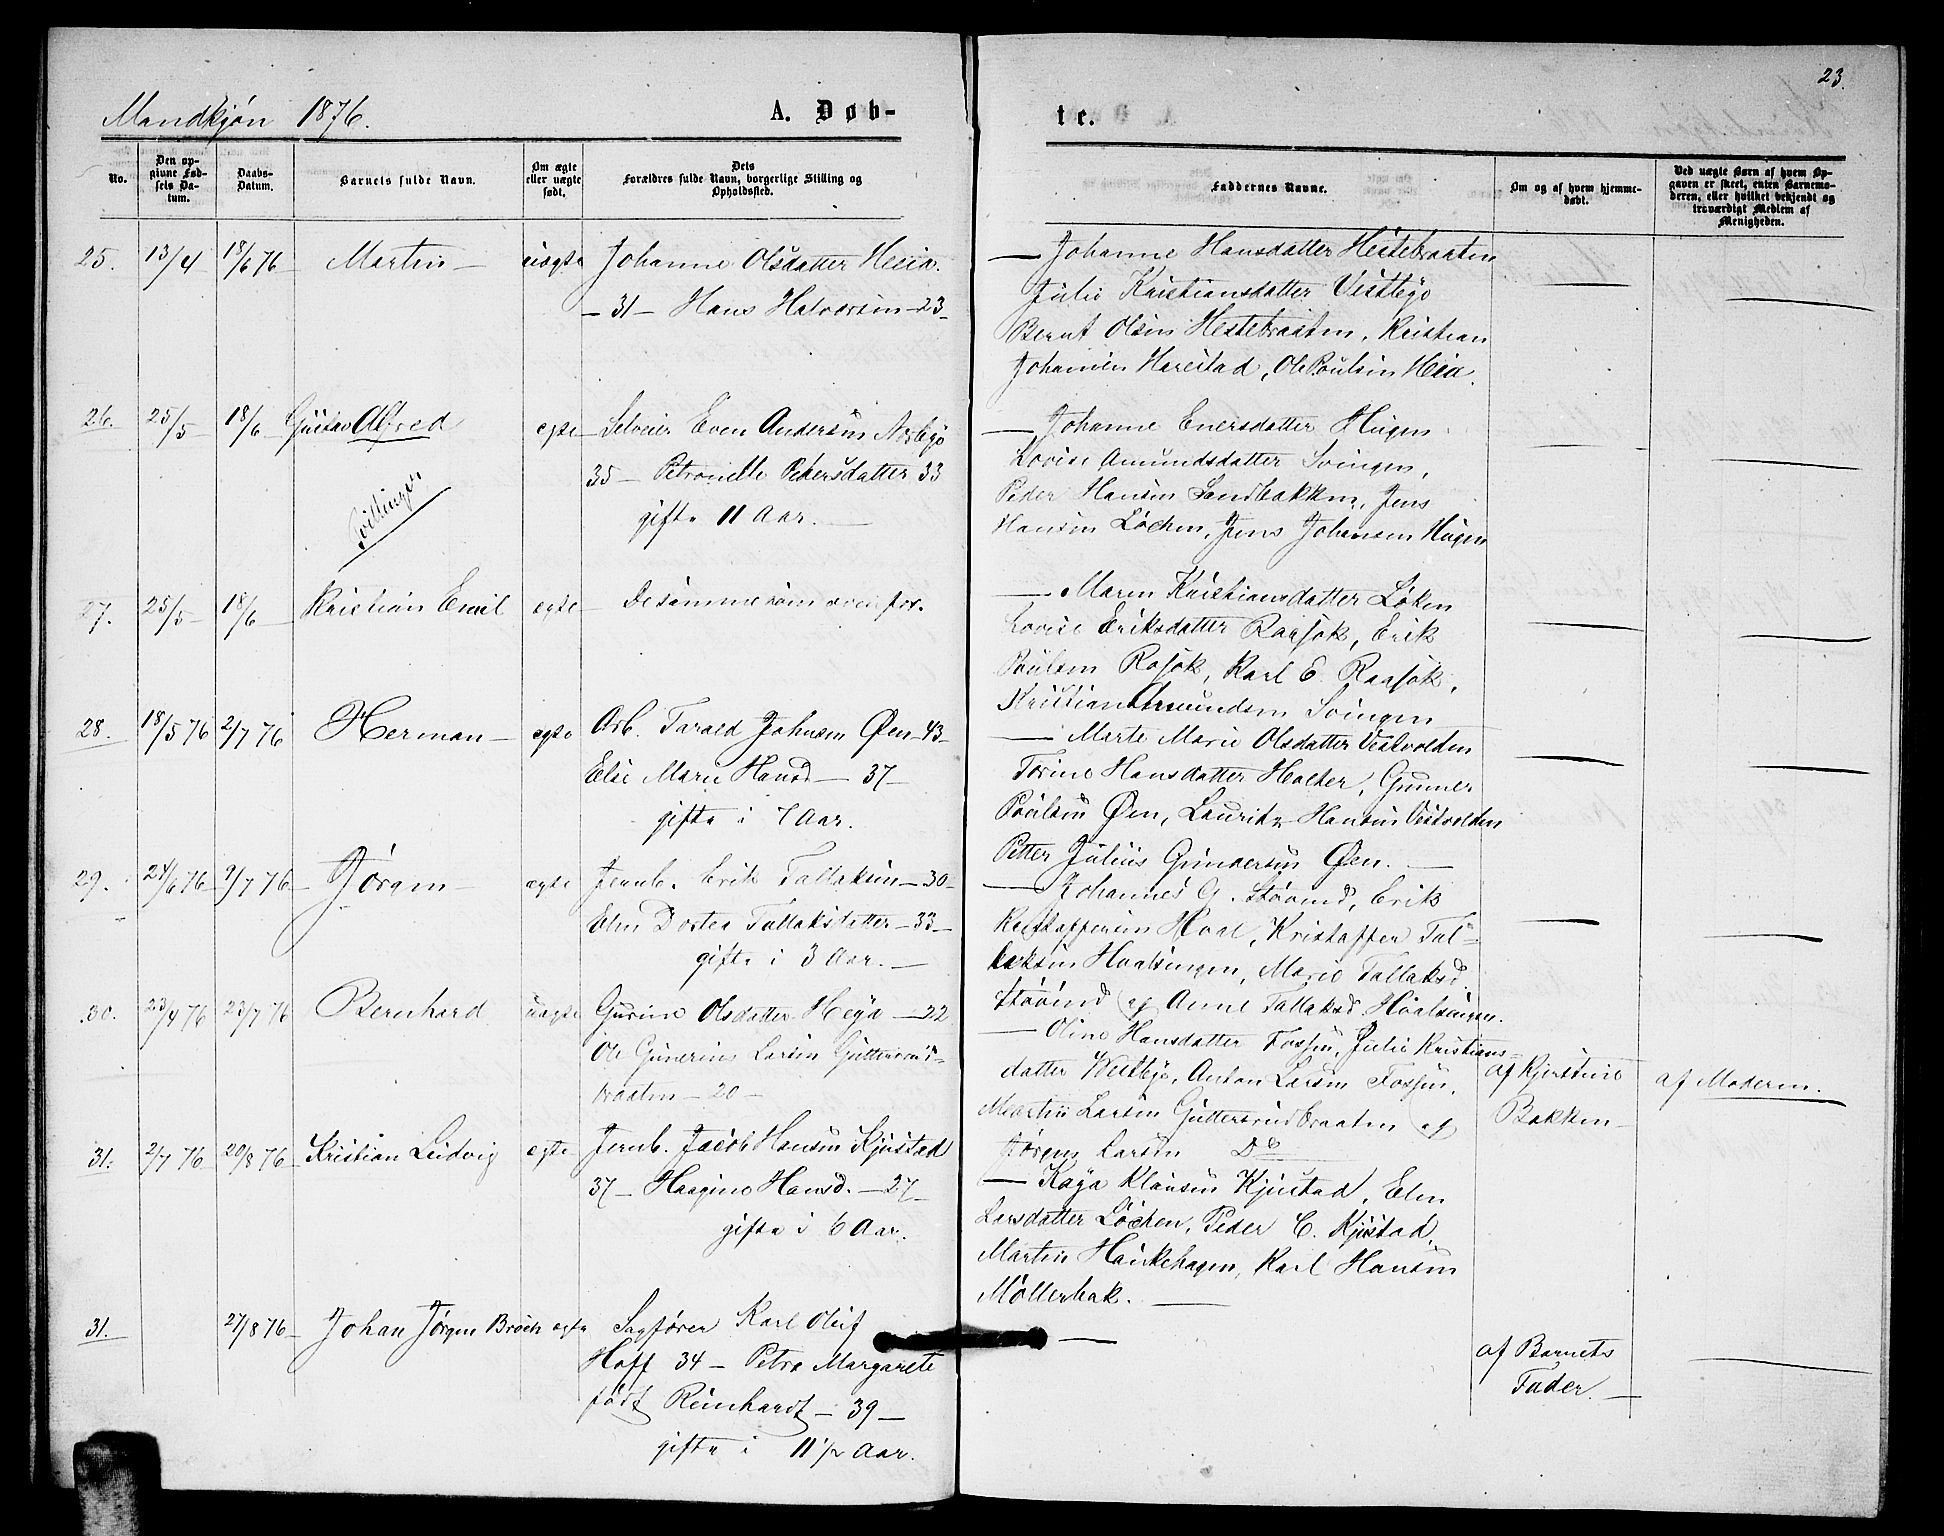 23.
Mandkjøn 1876.
A. Døb-
te.
No.
Den op-
givne Fød-
sels Da-
tum.
Daabs-
Datum.
Barnets fulde Navn.
Om ægte
eller uægte
født.
Dets
Forældres fulde Navn, borgerlige Stilling og
Opholdssted.
Faddernes Navne.
Om og af hvem hjemme-
døbt.
Ved uægte Børn af hvem Op-
gaven er skeet, enten Barnemo-
deren, eller hvilket bekjendt og
troværdigt Medlem af
Menigheden.
25. 13/4 18/6 76 Martin uægte Johanne Olsdatter Heia.
— 31 — Hans Halvorsen — 23 —
— Johanne Hansdatter Hestebraaten
Julie Kristiansdatter Vestbye
Bernt Olsen Hestebraaten, Kristian
Johannesen Harestad, Ole Poulsen Heia.
26. 25/5 18/6 Gustav Alfred egte Selveier Even Andersen Norbye
35 — Petronelle Pedersdatter 33
gifte 11 Aar. —
Tvillinger
— Johanne Enersdatter Haugen
Lovise Amundsdatter Svingen,
Peder Hansen Sandbakken, Jens
Hansen Løchen, Jens Johansen Haugen
27. 25/5 18/6 Kristian Emil egte De samme som ovenfor.
— Maren Kristiansdatter Løken
Lovise Eriksdatter Raasok, Erik
Poulsen Rasok, Karl E. Raasok,
Kristian Amundsen Svingen
28. 18/5 76 2/7 76 Herman — egte Arb. Tarald Johnsen Øen — 43 —
Else Marie Hansd — 37 —
gifte i 7 Aar.
— Marte Marie Olsdatter Vestvolden
Torine Hansdatter Holter, Gunner
Poulsen Øen, Lauritz Hansen Vestvolden
Petter Julius Gundersen Øen. —
29. 24/6 76 9/7 76 Jørgen — egte Jernb. Erik Tallaksen — 30 —
Elen Dortea Tallaksdatter — 33 —
gifte i 3 Aar. —
— Johannes G. Støvind, Erik
Kristoffersen Hval, Kristoffer Tal-
laksen Hvalsengen, Marie Tallaksd.
Støvind og Anne Tallaksd. Hvalsengen.
30. 23/4 76 23/7 76 Bernhard uægte Gurine Olsdatter Heya — 22
Ole Gunerius Larsen Guttersrud-
braaten — 20 —
— Oline Hansdatter Fossen, Julie Kristians-
datter Westbye, Anton Larsen Fossen,
Martin Larsen Guttersrudbraaten og
Jørgen Larsen Do
af Kjerstine
Bakken —
af Moderen.
31. 2/7 76 20/8 76 Kristian Ludvig egte Jernb. Jacob Hansen Kjustad
37 — Haagine Hansd. — 27 —
gifte i 6 Aar.
— Kaya Klausen Kjustad, Elen
Larsdatter Løchen, Peder C. Kjustad,
Martin Haukehagen, Karl Hansen
Møllerbak. —
31. 27/8 76 Johan Jørgen Broch egte Sagfører Karl Oluf
Hoff 34 — Petra Margarete
født Reinhardt — 39 —
gifte i 11 1/2 Aar.
af Barnets
Fader. —